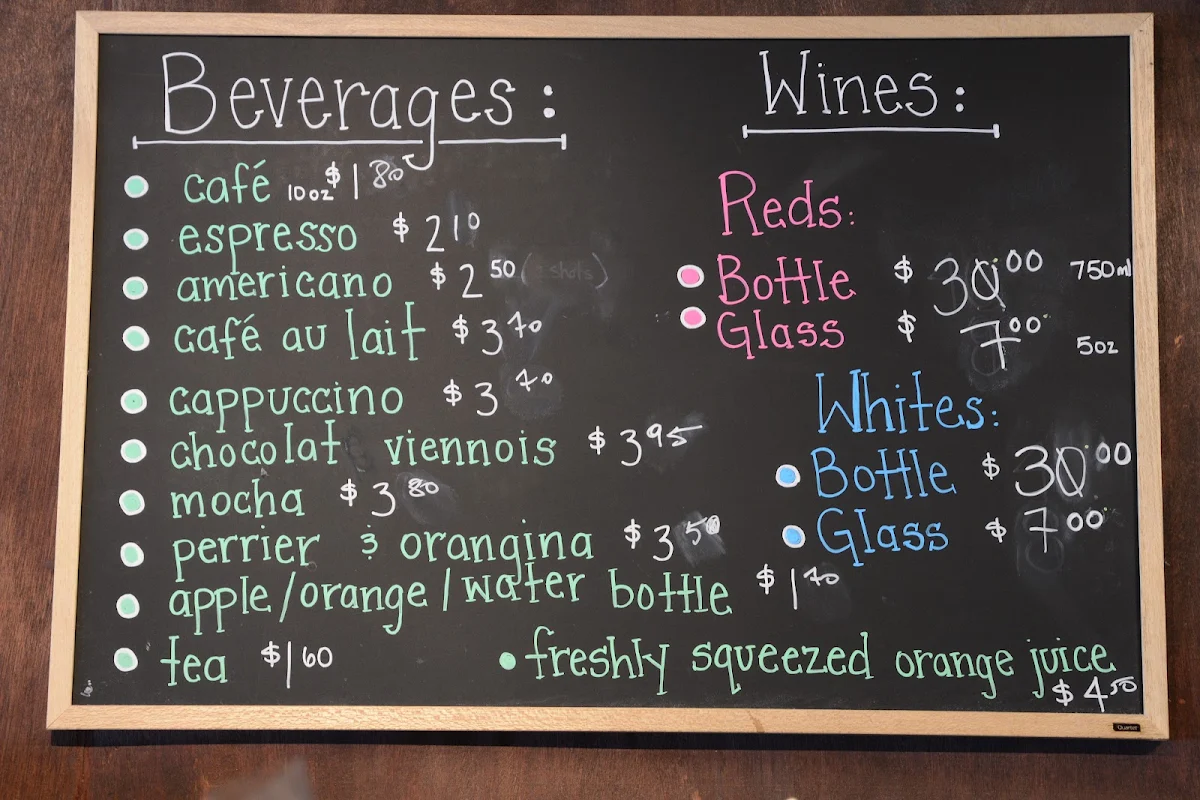 Beverages:
café 10oz $1 80
espresso $2 10
americano $2 50 (2 shots)
café au lait $3 70
cappuccino $3 70
chocolat viennois $3 95
mocha $3 80
perrier & orangina $3 50
apple/orange/water bottle $1 70
tea $1 60
freshly squeezed orange juice
$4 50
Wines:
Reds:
Bottle $30 00 750ml
Glass $7 00 5oz
Whites:
Bottle $30 00
Glass $7 00
Quartet